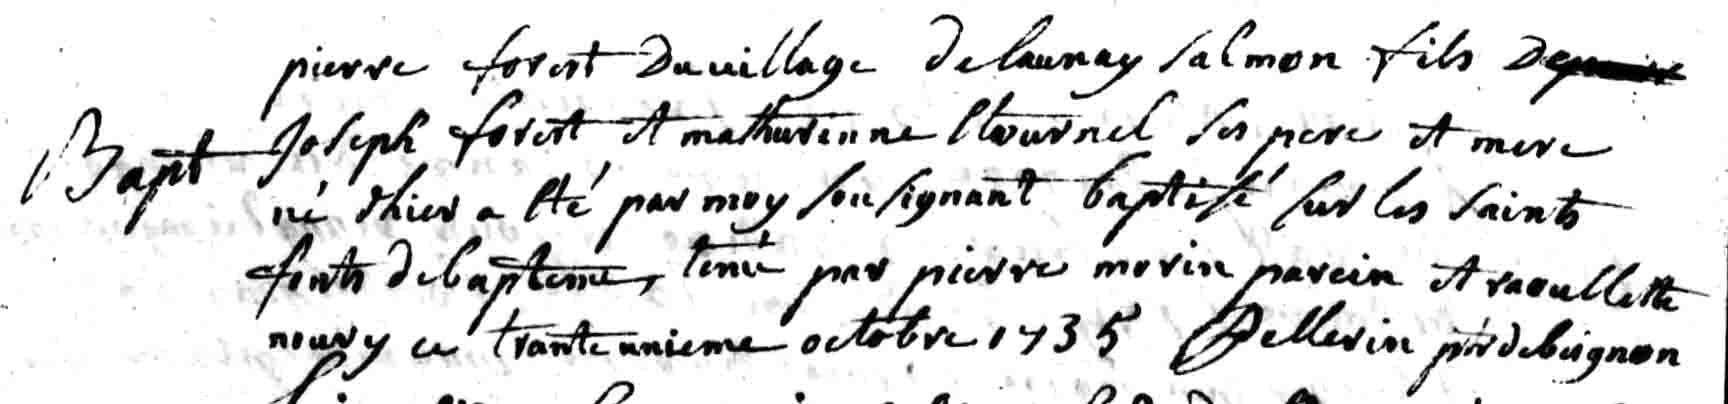 pierre forest Du village delaunay salmon fils De
Bapt Joseph forest et mathurinne Etournel ses pere et mere
né dhier a Eté par moy sousignant baptisé sur les saints
fonts de bapteme, tenu par pierre morin parein et raoullette
noury ce trante unieme octobre 1735 Pellerin ptre de beignon